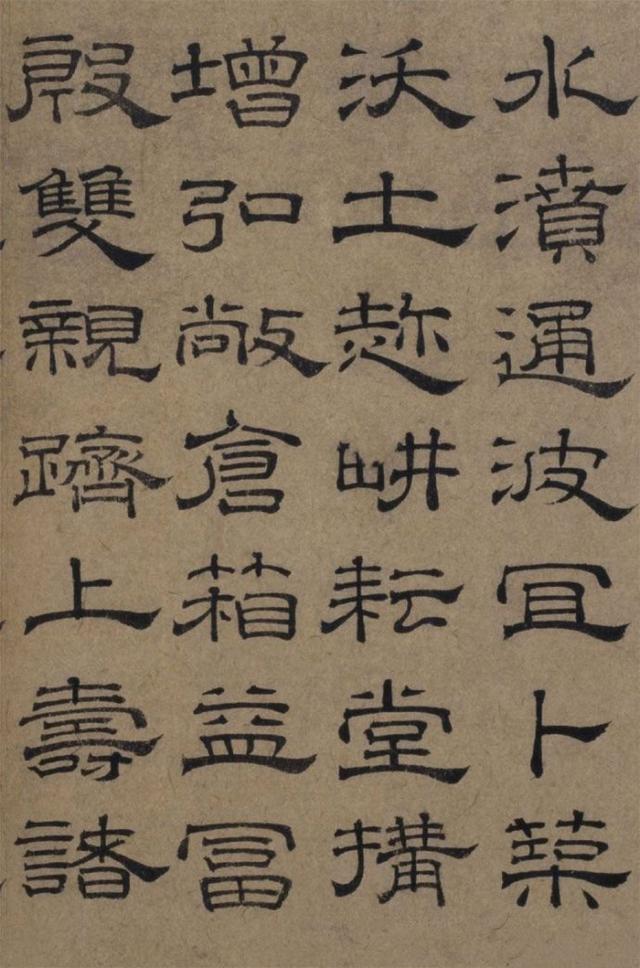 水濆通波冝卜築
沃土趂畊耘堂搆
增弘敞倉箱益冨
殷雙親躋上壽諸